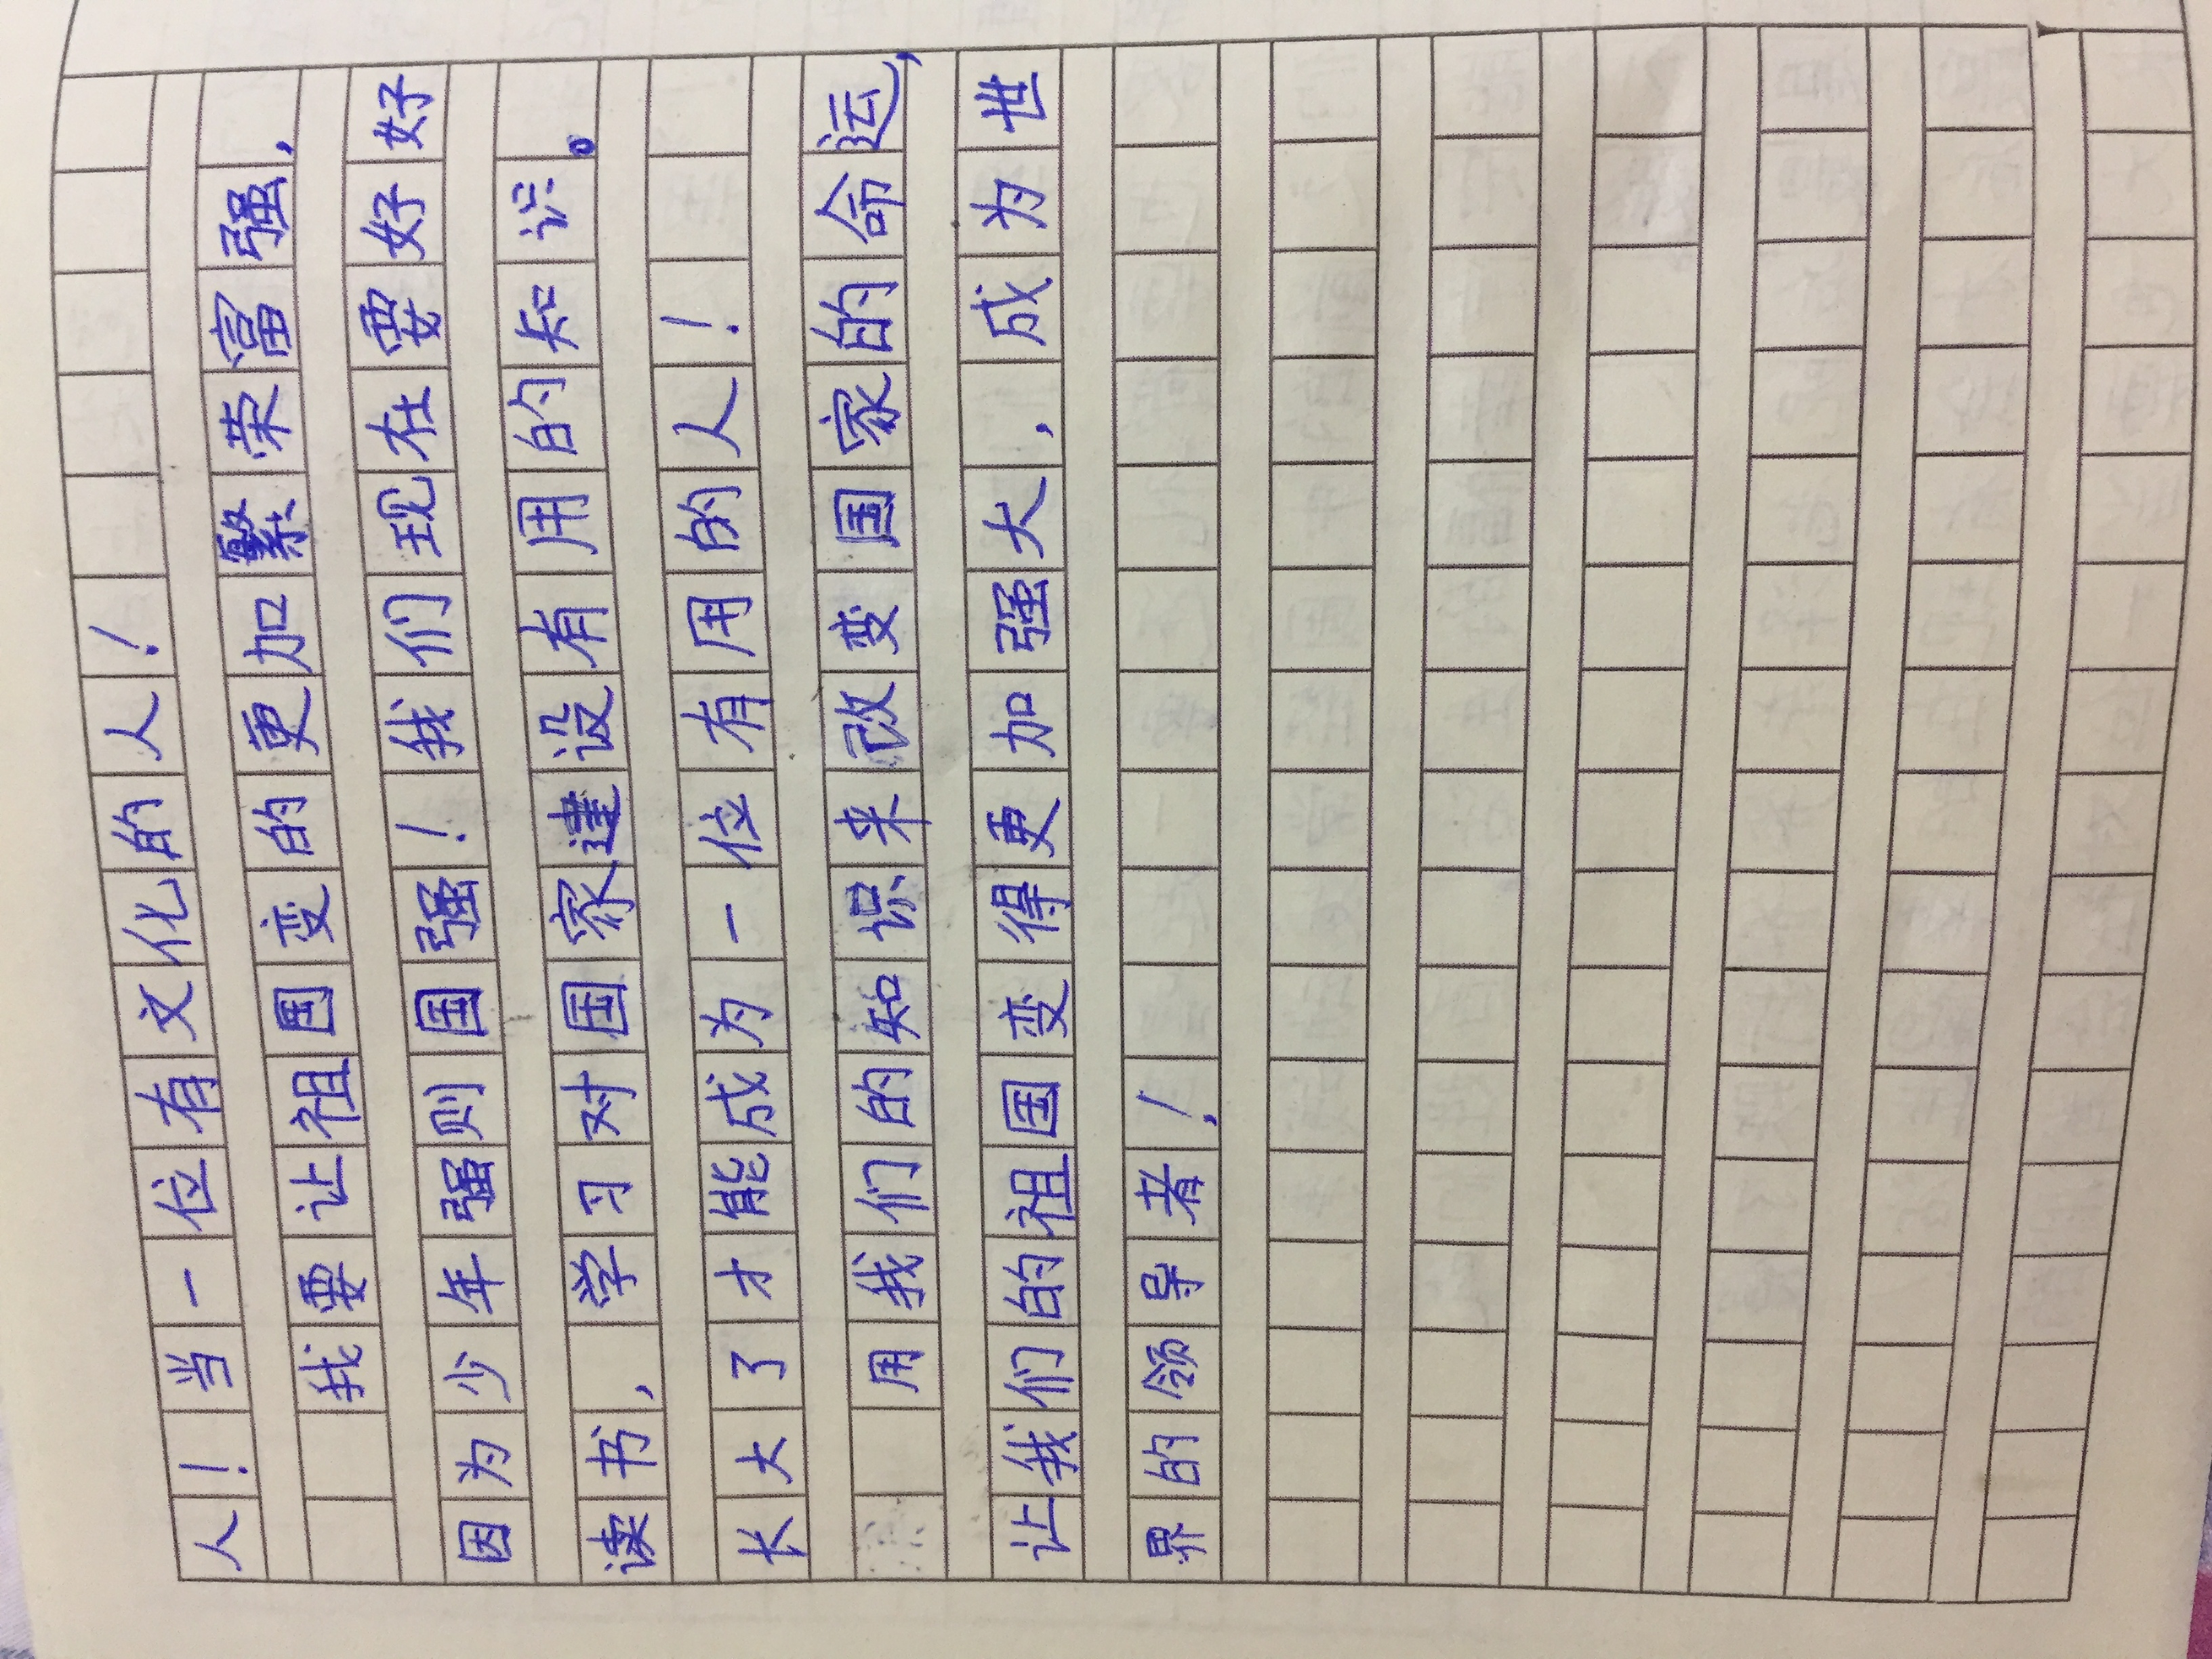 人！当一位有文化的人！
我要让祖国变的更加繁荣富强，
因为少年强则国强！我们现在要好好
读书，学习对国家建设有用的知识。
长大了才能成为一位有用的人！
用我们的知识来改变国家的命运，
让我们的祖国变得更加强大，成为世
界的领导者！